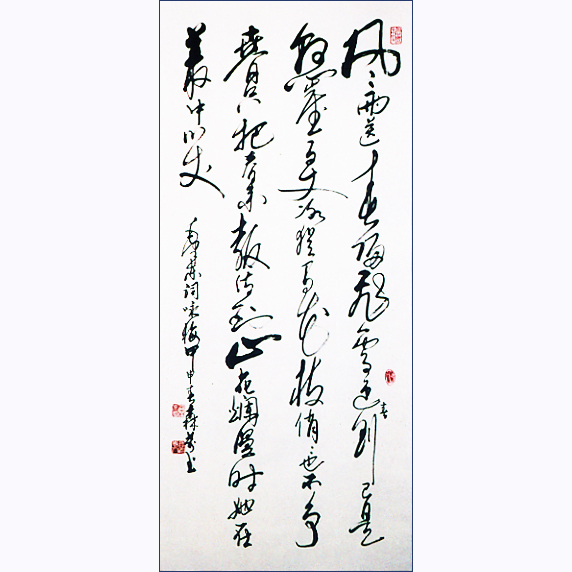 风雨送春归飛雪迎春到已是
懸崖百丈冰猶有花枝俏也不争
春只把春来報待到山花爛漫时她在
叢中笑
毛澤东詞咏梅甲申春森书